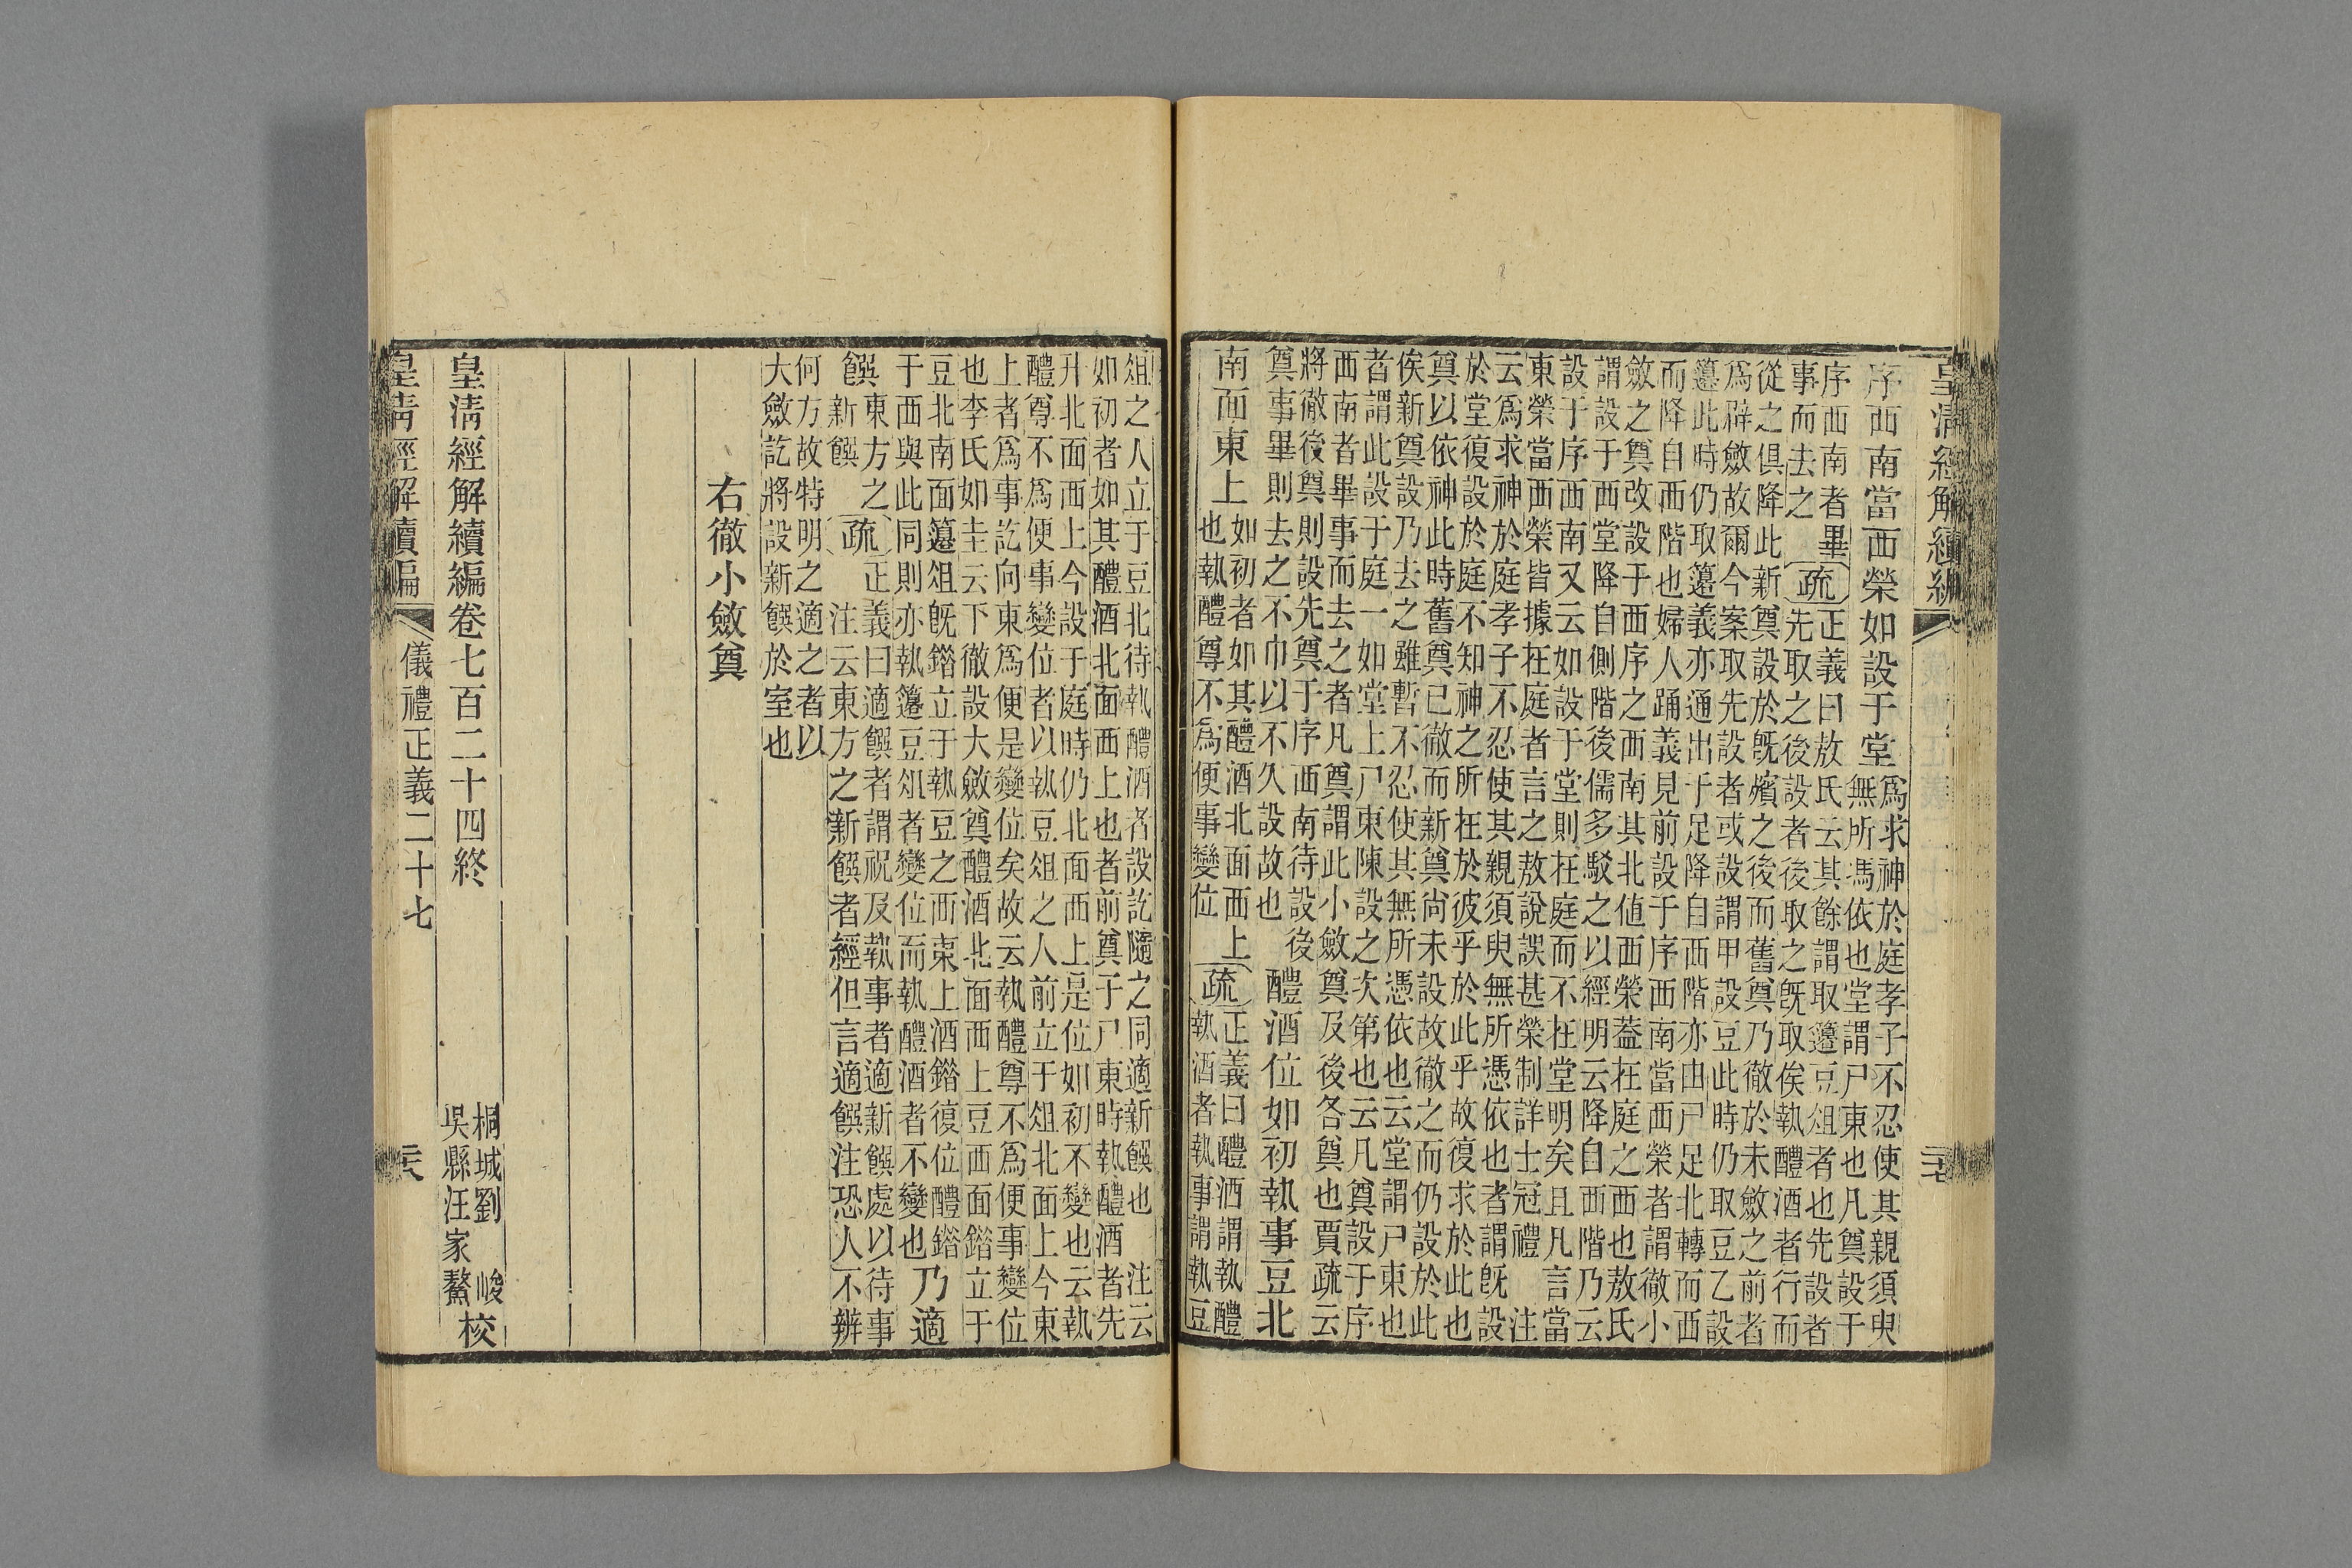 皇清經解續編
序西南當西榮如設于堂
爲求神於庭孝子不忍使其親須臾
無所馮依也堂謂尸東也凡奠設于
序西南者畢
事而去之
疏
正義曰敖氏云其餘謂取籩豆俎者也先設者
先取之後設者後取之旣取俟執醴酒者行而
從之俱降此新奠設於旣殯之後而舊奠乃徹於未斂之前者
爲辟斂故爾今案取先設者或設謂甲設豆此時仍取豆乙設
籩此時仍取籩義亦通出于足降自西階亦由尸足北轉而西
而降自西階也婦人踊義見前設于序西南當西榮者謂徹小
斂之奠改設于西序之西南其北値西榮葢在庭之西也敖氏
謂設于西堂降自側階後儒多駁之以經明云降自西階乃云
設于序西南又云如設于堂則在庭而不在堂明矣且凡言當
東榮當西榮皆據在庭者言之敖說誤甚榮制詳士冠禮　注
云爲求神於庭孝子不忍使其親須臾無所憑依也者謂旣設
於堂復設於庭不知神之所在於彼乎於此乎故復求於此也
奠以依神此時舊奠已徹而新奠尚未設故徹之而仍設於此
俟新奠設乃去之雖暫不忍使其無所憑依也云堂謂尸東也
者謂此設于庭一如堂上尸東陳設之次第也云凡奠設于序
西南者畢事而去之者凡奠謂此小斂奠及後各奠也賈疏云
將徹後奠則設先奠于序西南待設後
奠事畢則去之不巾以不久設故也
醴酒位如初執事豆北
南面東上
如初者如其醴酒北面西上
也執醴尊不爲便事變位
疏
正義曰醴酒謂執醴
執酒者執事謂執豆
俎之人立于豆北待執醴酒者設訖隨之同適新饌也　注云
如初者如其醴酒北面西上也者前奠于尸東時執醴酒者先
升北面西上今設于庭時仍北面西上是位如初不變也云執
醴尊不爲便事變位者以執豆俎之人前立于俎北面上今東
上者爲事訖向東爲便是變位矣故云執醴尊不爲便事變位
也李氏如圭云下徹設大斂奠醴酒北面西上豆西面錯立于
豆北南面籩俎旣錯立于執豆之西東上酒錯復位醴錯
于西與此同則亦執籩豆俎者變位而執醴酒者不變也
乃適
饌
東方之
新饌
疏
正義曰適饌者謂祝及執事者適新饌處以待事
注云東方之新饌者經但言適饌注恐人不辨
何方故特明之適之者以
大斂訖將設新饌於室也
右徹小斂奠
皇清經解續編卷七百二十四終
桐城劉　峻
吳縣汪家鰲
校
皇清經解續編
儀禮正義二十七